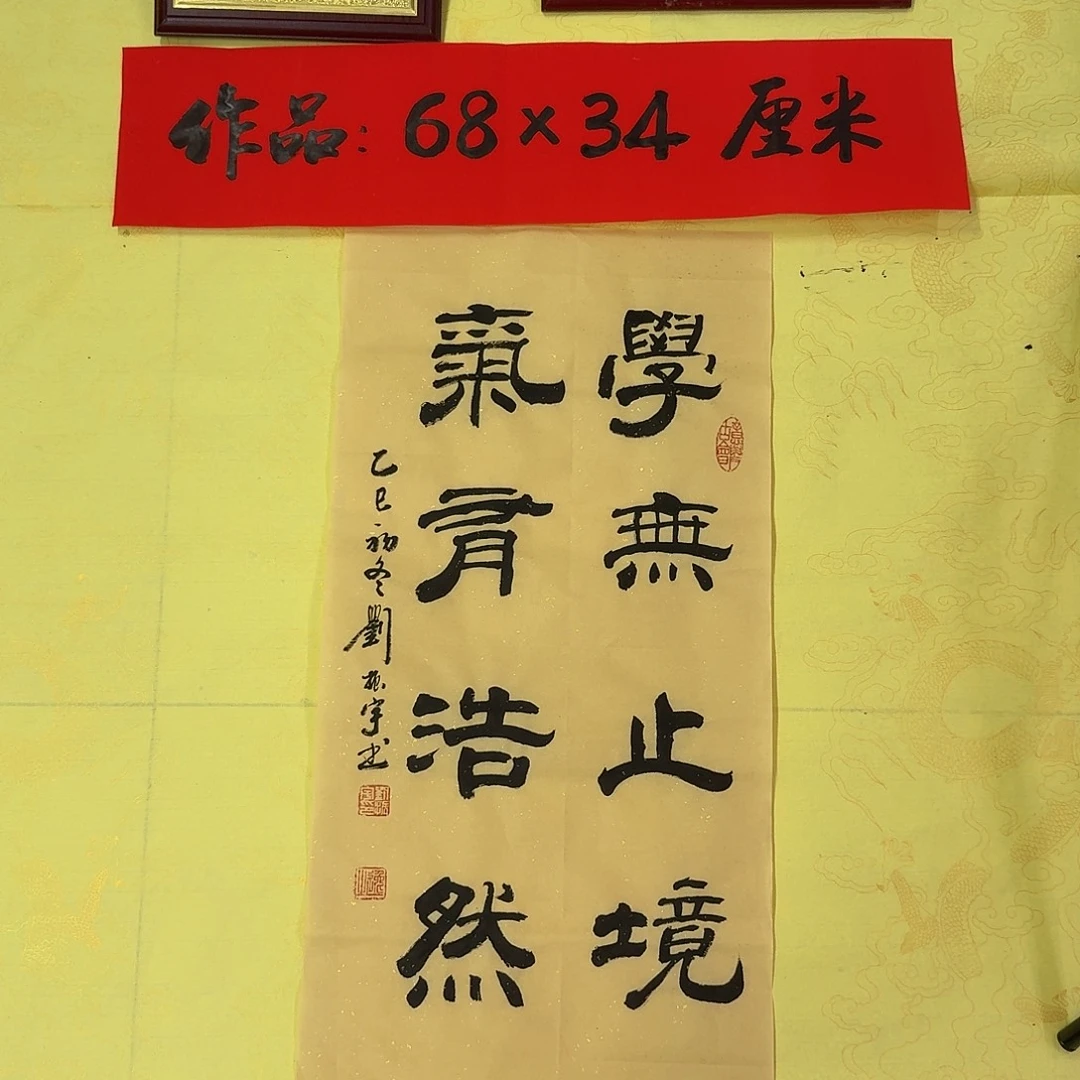 作品：68×34厘米
學無止境
氣有浩然
乙巳初冬劉振宇书